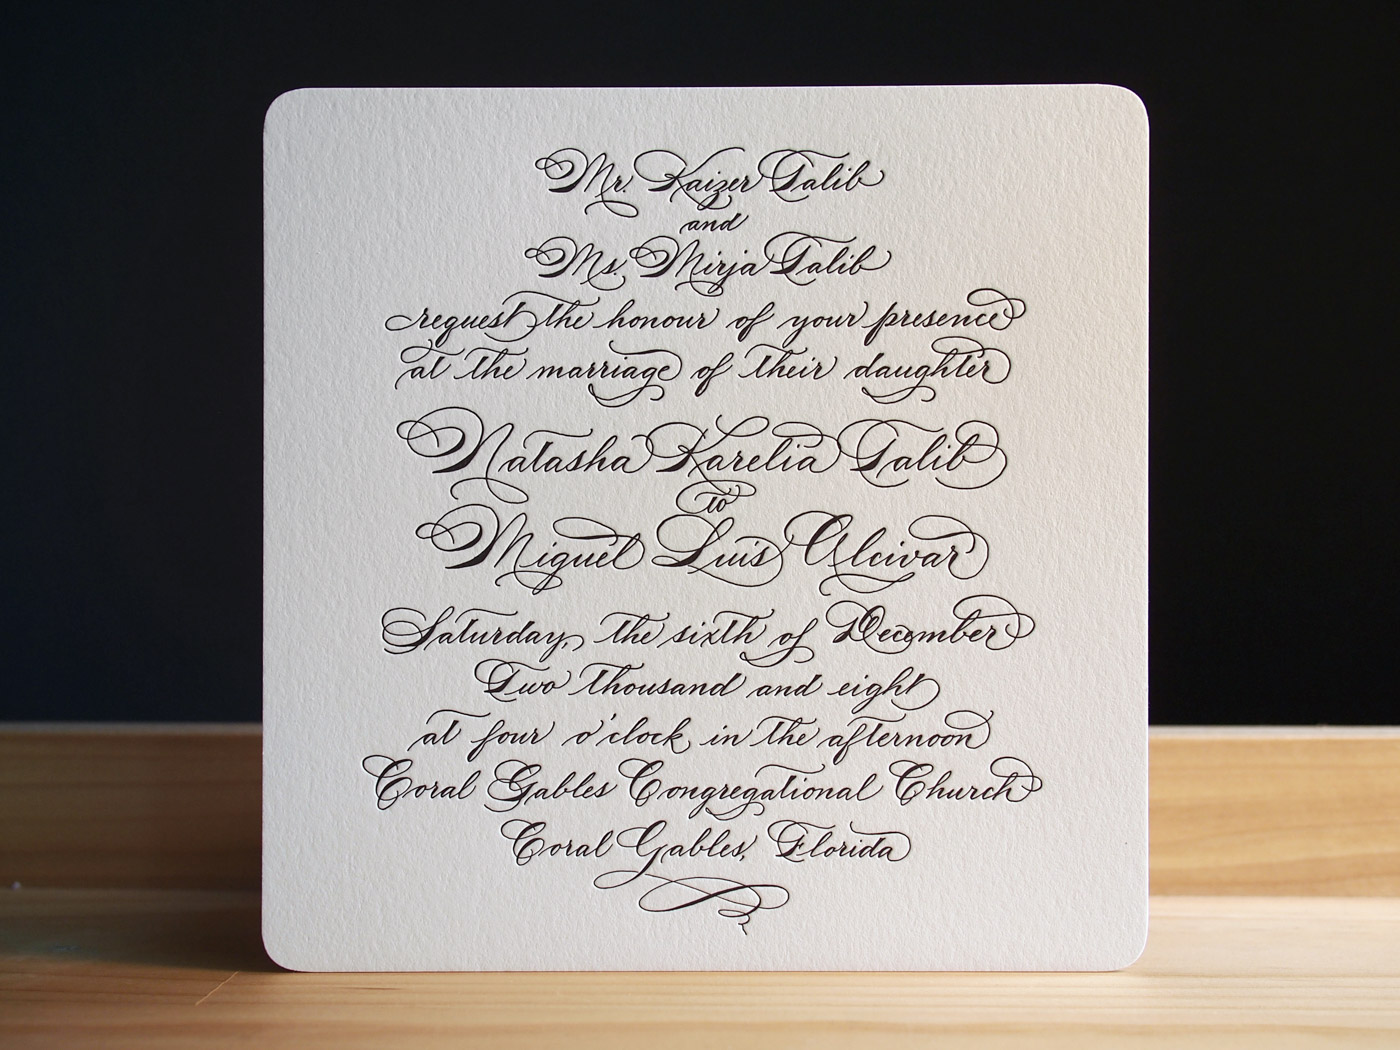 Mr. Kaizer Talib
and
Ms. Mirja Talib
request the honour of your presence
at the marriage of their daughter
Natasha Karelia Talib
to
Miguel Luis Alcivar
Saturday, the sixth of December
Two thousand and eight
at four o'clock in the afternoon
Coral Gables Congregational Church
Coral Gables, Florida